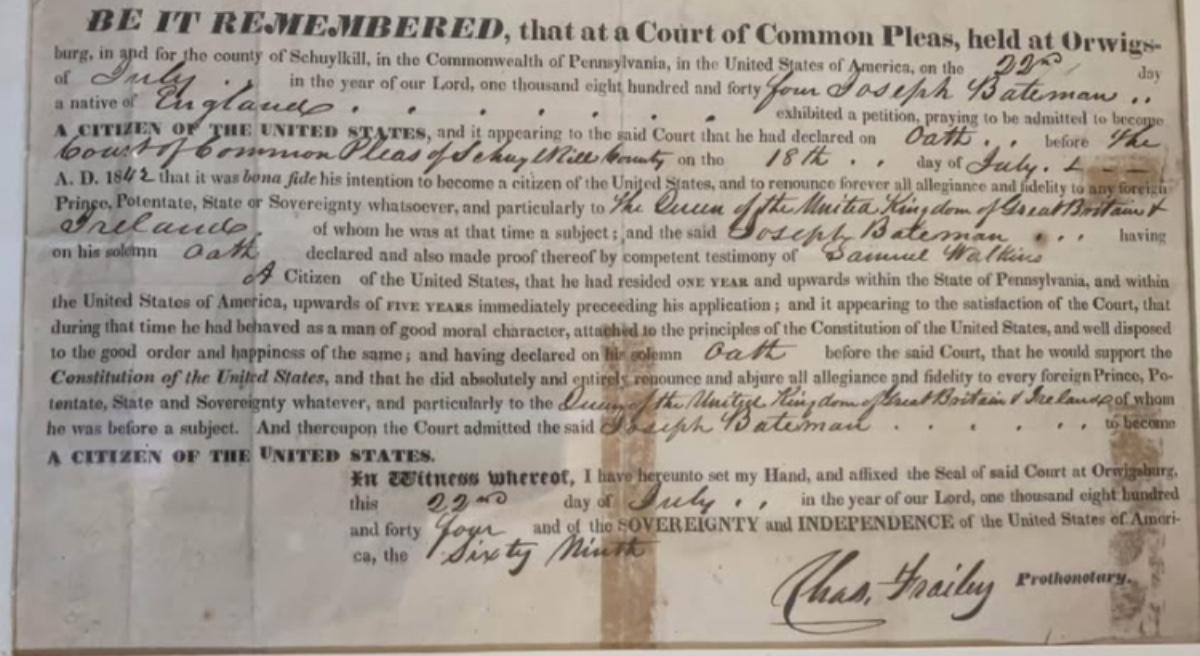 BE IT REMEMBERED, that at a Court of Common Pleas, held at Orwigs-
burg, in and for the county of Schuylkill, in the Commonwealth of Pennsylvania, in the United States of America, on the 22nd day
of July . . in the year of our Lord, one thousand eight hundred and forty four Joseph Bateman . .
a native of England . . . . . . exhibited a petition, praying to be admitted to become
A CITIZEN OF THE UNITED STATES, and it appearing to the said Court that he had declared on Oath . . before the
Court of Common Pleas of Schuylkill County on the 18th . . day of July .
A. D. 1842 that it was bona fide his intention to become a citizen of the United States, and to renounce forever all allegiance and fidelity to any foreign
Prince, Potentate, State or Sovereignty whatsoever, and particularly to the Queen of the United Kingdom of Great Britain &
Ireland. of whom he was at that time a subject; and the said Joseph Bateman . . . having
on his solemn Oath declared and also made proof thereof by competent testimony of Samuel Watkins
A Citizen of the United States, that he had resided ONE YEAR and upwards within the State of Pennsylvania, and within
the United States of America, upwards of FIVE YEARS immediately preceeding his application; and it appearing to the satisfaction of the Court, that
during that time he had behaved as a man of good moral character, attached to the principles of the Constitution of the United States, and well disposed
to the good order and happiness of the same; and having declared on his solemn Oath before the said Court, that he would support the
Constitution of the United States, and that he did absolutely and entirely renounce and abjure all allegiance and fidelity to every foreign Prince, Po-
tentate, State and Sovereignty whatever, and particularly to the Queen of the United Kingdom of Great Britain & Ireland of whom
he was before a subject. And thereupon the Court admitted the said Joseph Bateman . . . . . . to become
A CITIZEN OF THE UNITED STATES.
In Witness whereof, I have hereunto set my Hand, and affixed the Seal of said Court at Orwigsburg,
this 22nd day of July . . in the year of our Lord, one thousand eight hundred
and forty four and of the SOVEREIGNTY and INDEPENDENCE of the United States of Ameri-
ca, the Sixty Ninth
Chas. Frailey Prothonotary.